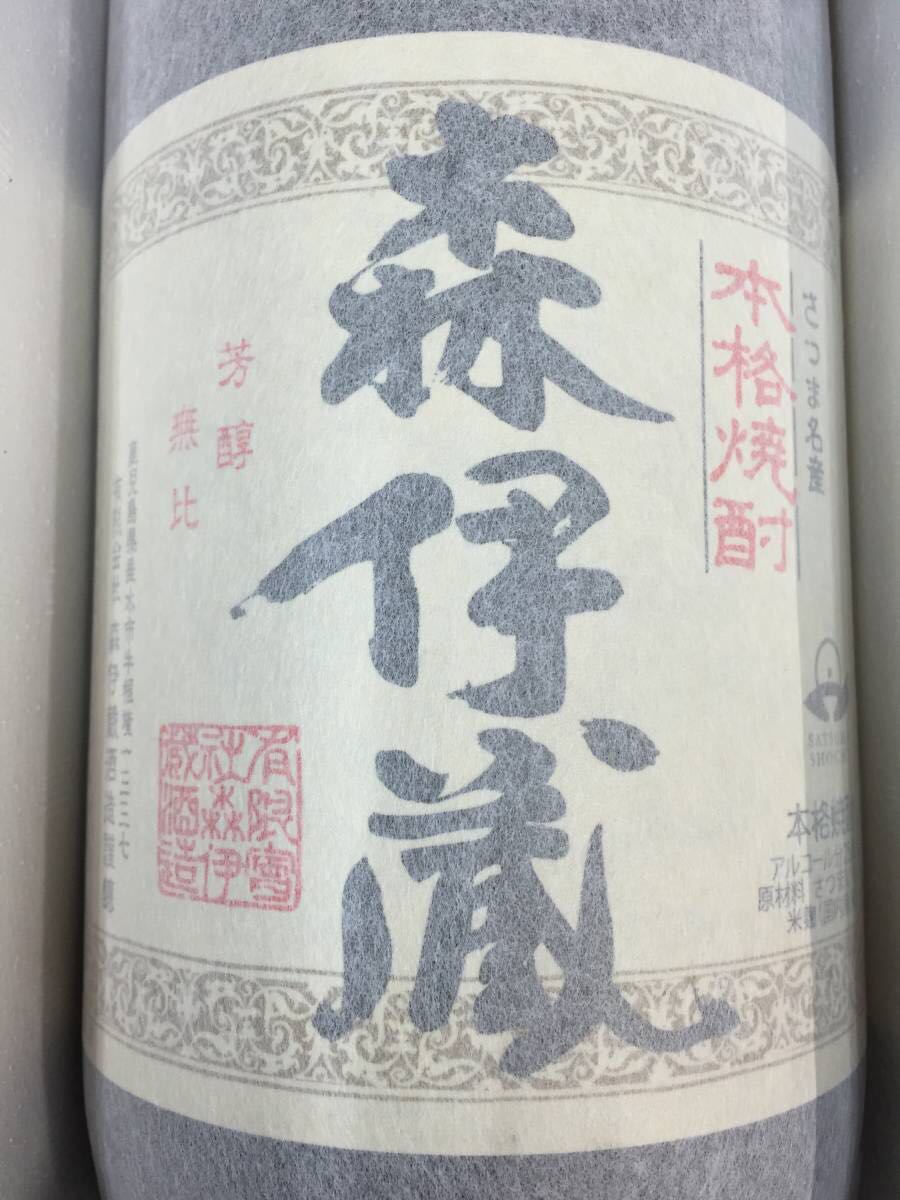 さつま名産
本格焼酎
森伊蔵
芳醇
無比
鹿児島県垂水市牛根麓一二三七
有限会社森伊蔵酒造醸
有限会
社森伊
蔵酒造
SATSUMA
SHOCHU
本格焼
アルコール分
原材料 さつま
米麹(国内産